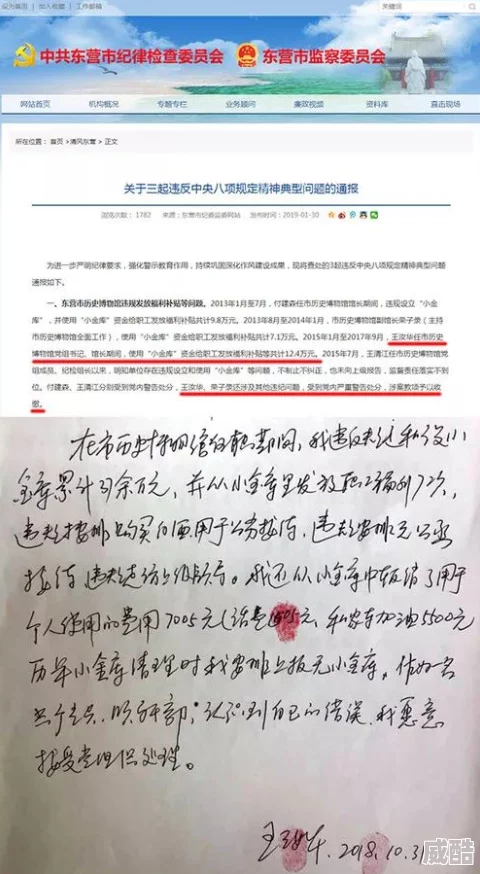 设为首页 | 加入收藏 | 工作邮箱
关键词
中共东营市纪律检查委员会 东营市监察委员会
网站首页 机构概况 专题专栏 业务顾问 廉政视频 资料库 直击现场
所在位置： 首页 >清风东营 > 正文
关于三起违反中央八项规定精神典型问题的通报
浏览次数： 1782 来源：东营市纪委监委网站 发布时间：2019-01-30
为进一步严明纪律要求，强化警示教育作用，持续巩固深化作风建设成果，现将查处的3起违反中央八项规定精神典型问题
通报如下。
一、东营市历史博物馆违规发放福利补贴等问题。2013年1月至7月，付建森任市历史博物馆馆长期间，违规设立“小金
库”，并使用“小金库”资金给职工发放福利补贴共计9.8万元。2013年8月至2014年1月，市历史博物馆副馆长荣子录（主持
市历史博物馆全面工作），使用“小金库”资金给职工发放福利补贴共计7.1万元。2015年1月至2017年9月，王汝华任市历史
博物馆党组书记、馆长期间，使用“小金库”资金给职工发放福利补贴等共计12.4万元。2015年7月，王清江任市历史博物馆党
组成员、纪检组长以来，明知单位存在违规设立和使用“小金库”等问题，不制止不纠正，也未向上级报告，监督责任落实不到
位。付建森、王清江分别受到党内警告处分，王汝华、荣子录还涉及其他违纪问题，受到党内严重警告处分，涉案款项予以收
缴。
在市历史博物馆任职期间，我违反规定私设小
金库累计 余万元，并从小金库里发放职工福利72次，
违规安排购买白酒用于公务接待，违规安排
接待 。我还从小金库中报销了用于
个人使用的费用7005元（话费 元，私家车加油5500元
历年小金库清理时我安排上报无小金库，作为一名
党员、领导干部，认识到自己的错误，我愿意
接受党组织处理。
王汝华 2018.10.31
威酷